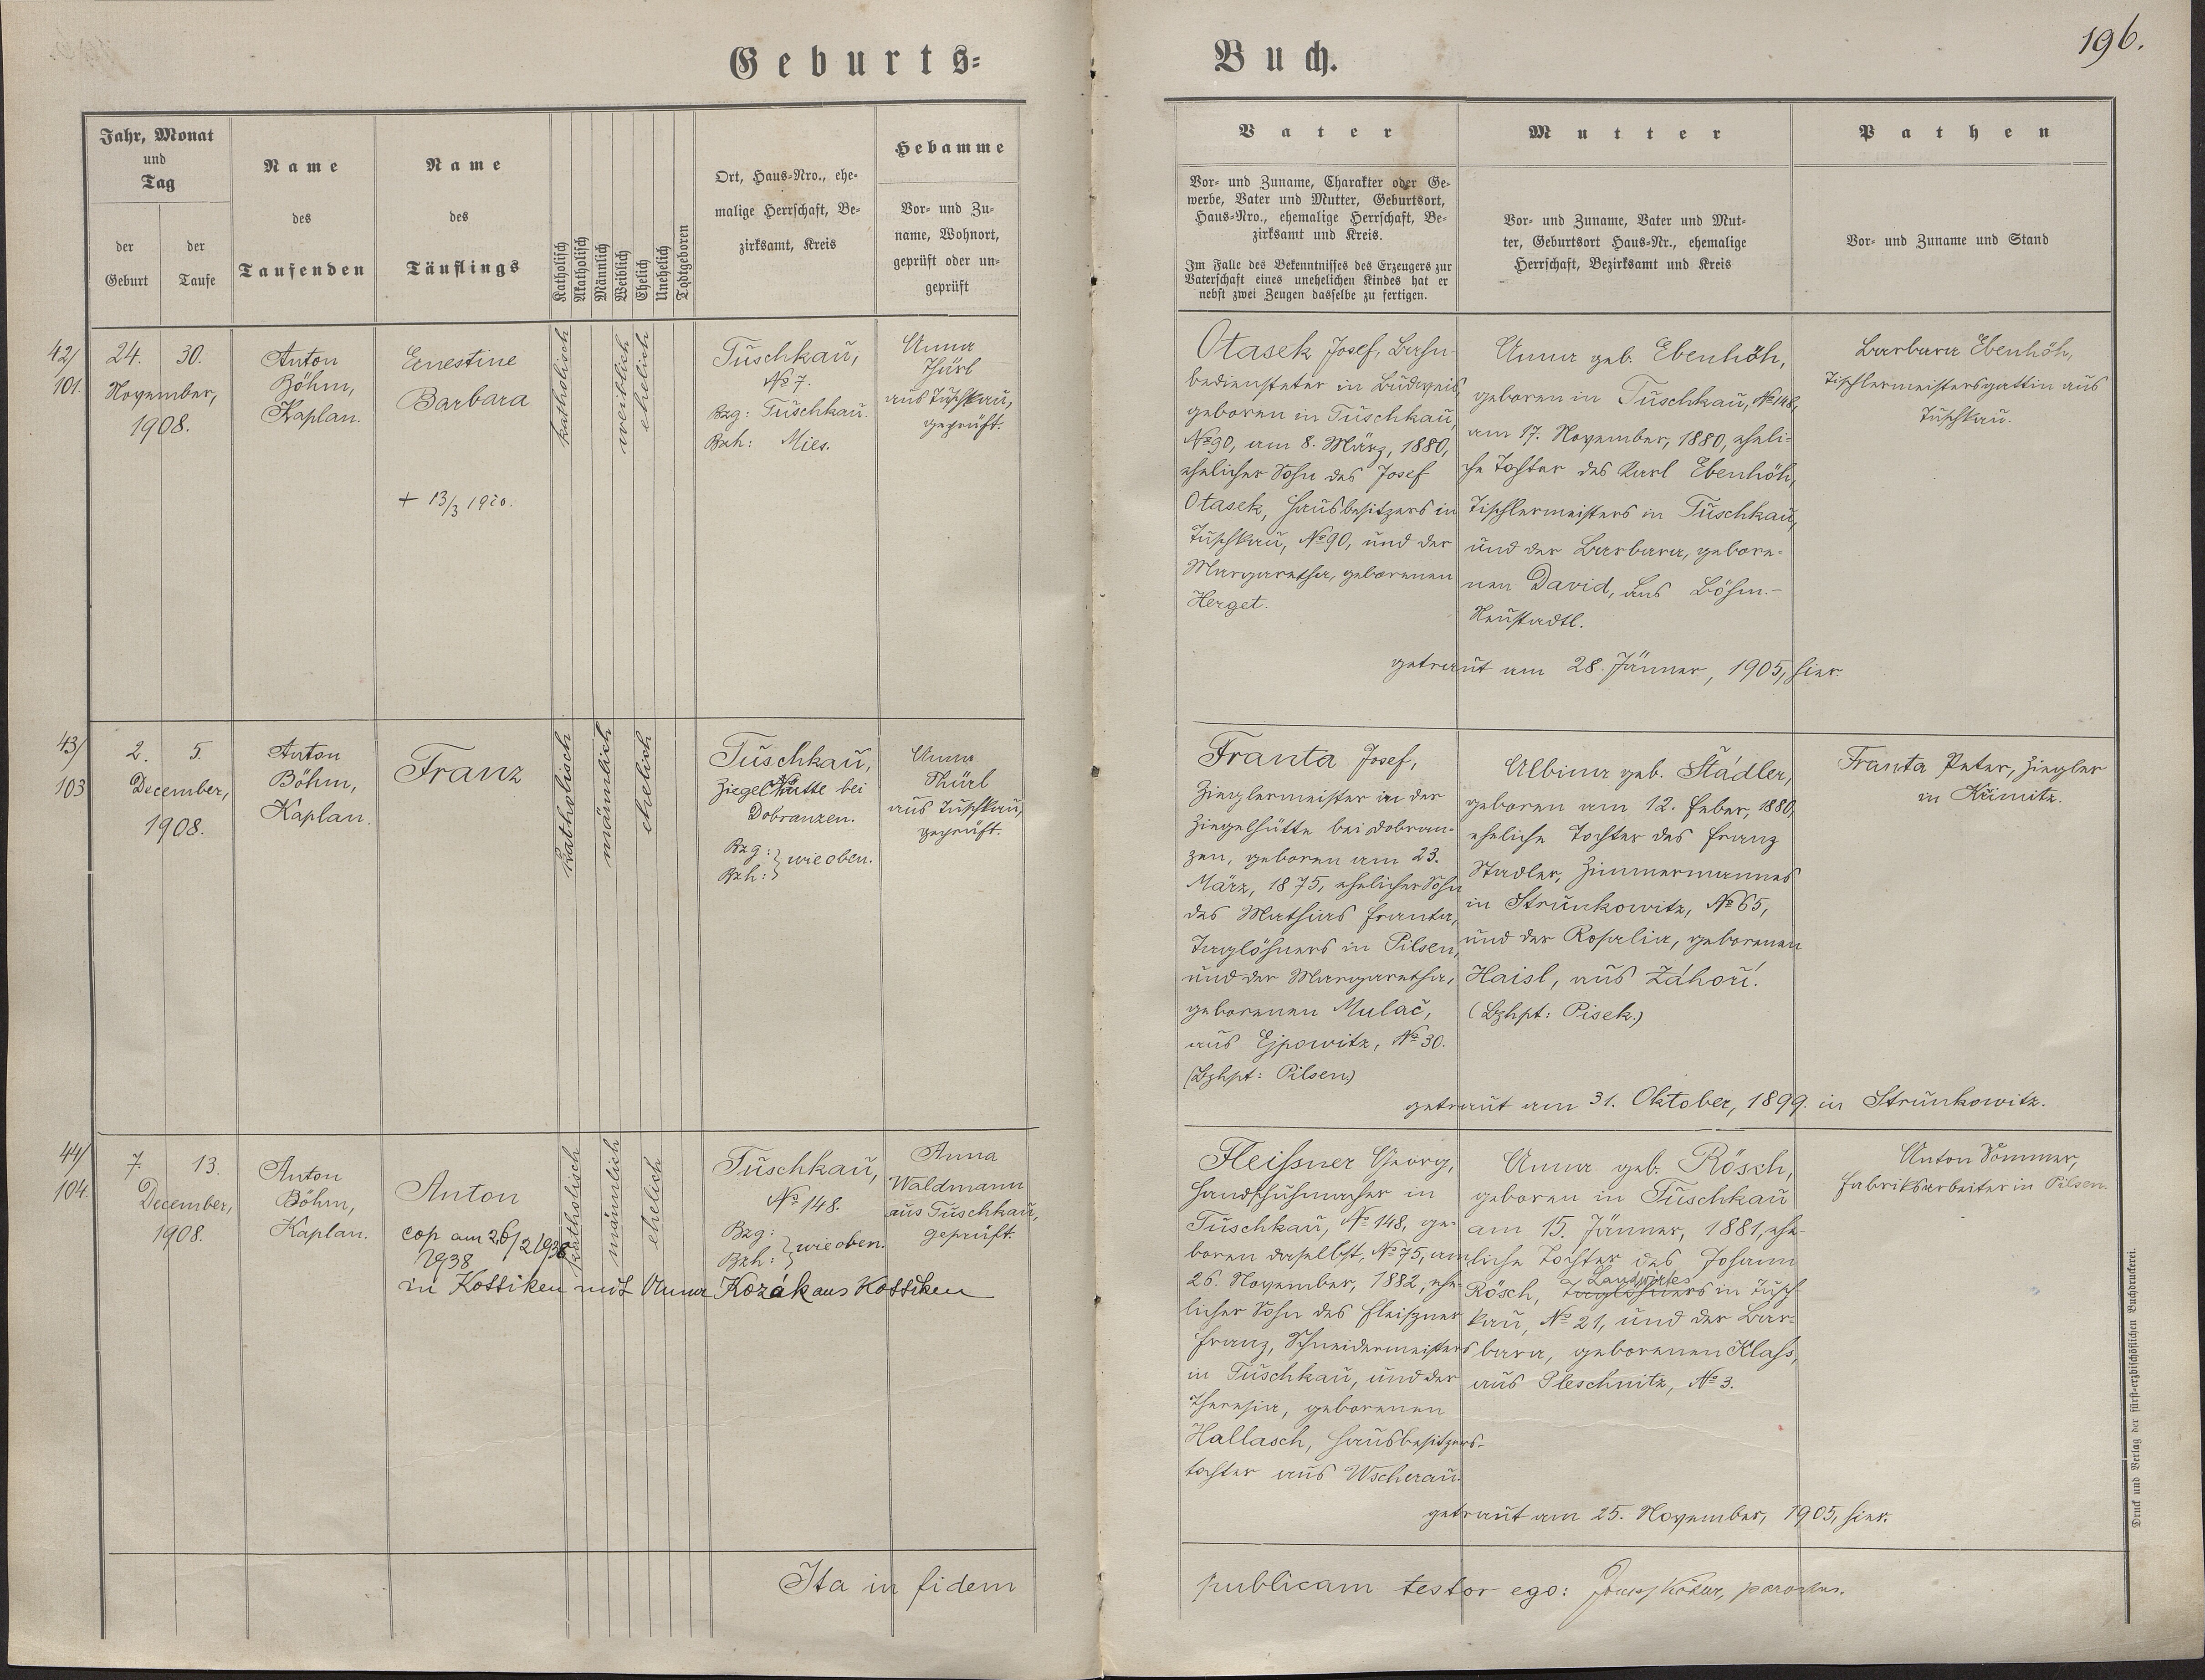 Geburts-
Buch.
196.
Jahr, Monat
und
Tag
der
Geburt
der
Taufe
Name
des
Taufenden
Name
des
Täuflings
Katholisch
Akatholisch
Männlich
Weiblich
Ehelich
Unehelich
Todtgeboren
Ort, Haus-Nro., ehe-
malige Herrschaft, Be-
zirksamt, Kreis
Hebamme
Vor- und Zu-
name, Wohnort,
geprüft oder un-
geprüft
Vater
Vor- und Zuname, Charakter oder Ge-
werbe, Vater und Mutter, Geburtsort,
Haus-Nro., ehemalige Herrschaft, Be-
zirksamt und Kreis.
Im Falle des Bekenntnisses des Erzeugers zur
Vaterschaft eines unehelichen Kindes hat er
nebst zwei Zeugen dasselbe zu fertigen.
Mutter
Vor- und Zuname, Vater und Mut-
ter, Geburtsort Haus-Nr., ehemalige
Herrschaft, Bezirksamt und Kreis
Pathen
Vor- und Zuname und Stand
42/
101.
24. 30.
November,
1908.
Anton
Böhm,
Kaplan.
Ernestine
Barbara
+ 13/3 1910.
katholisch
weiblich
ehelich
Tuschkau,
No 7.
Bzg: Tuschkau.
Bzh: Mies.
Anna
Thürl
aus Tuschkau,
geprüft.
Otasek Josef, Bahn-
bediensteter in Budweis,
geboren in Tuschkau,
No 90, am 8. März, 1880,
ehelicher Sohn des Josef
Otasek, Hausbesitzers in
Tuschkau, No 90, und der
Margaretha, geborenen
Herget.
Anna geb. Ebenhöh,
geboren in Tuschkau, No 148,
am 17. November, 1880, eheli-
che Tochter des Karl Ebenhöh,
Tischlermeisters in Tuschkau,
und der Barbara, gebore-
nen David, aus Böhm.-
Neustadtl.
getraut am 28. Jänner, 1905, hier.
Barbara Ebenhöh,
Tischlermeistersgattin aus
Tuschkau.
43/
103
2. 5.
December,
1908.
Anton
Böhm,
Kaplan.
Franz
katholisch
männlich
ehelich
Tuschkau,
Ziegelhütte bei
Dobranzen.
Bzg: } wie oben.
Bzh: }
Anna
Thürl
aus Tuschkau,
geprüft.
Franta Josef,
Zieglermeister in der
Ziegelhütte bei Dobran-
zen, geboren am 23.
März, 1875, ehelicher Sohn
des Mathias Franta,
Taglöhners in Pilsen,
und der Margaretha,
geborenen Mulač,
aus Ejpowitz, No 30.
(Bzhpt: Pilsen)
Albina geb. Städler,
geboren am 12. Feber, 1880,
eheliche Tochter des Franz
Stadler, Zimmermannes
in Strunkowitz, No 65,
und der Rosalia, geborenen
Haisl, aus Záhoří.
(Bzhpt: Pisek.)
getraut am 31. Oktober, 1899. in Strunkowitz.
Franta Peter, Ziegler
in Křimitz.
44/
104.
7. 13.
December,
1908.
Anton
Böhm,
Kaplan.
Anton
cop am 26/2 1938
1938
in Kottiken mit Anna Kozák aus Kottiken
katholisch
männlich
ehelich
Tuschkau,
No 148.
Bzg: } wie oben.
Bzh: }
Anna
Waldmann
aus Tuschkau,
geprüft.
Fleißner Georg,
Handschuhmacher in
Tuschkau, No 148, ge-
boren daselbst, No 75, am
26. November, 1882, ehe-
licher Sohn des Fleißner
Franz, Schneidermeisters
in Tuschkau, und der
Theresia, geborenen
Hallasch, Hausbesitzers-
tochter aus Wscherau.
Anna geb. Rösch,
geboren in Tuschkau
am 15. Jänner, 1881, ehe-
liche Tochter des Johann
Landwirtes
Rösch, Taglöhners in Tusch-
kau, No 21, und der Bar-
bara, geborenen Klass,
aus Pleschnitz, No 3.
getraut am 25. November, 1905, hier.
Anton Sommer,
Fabriksarbeiter in Pilsen.
Ita in fidem
publicam testor ego: parochus.
Druck und Verlag der fürst-erzbischöflichen Buchdruckerei.